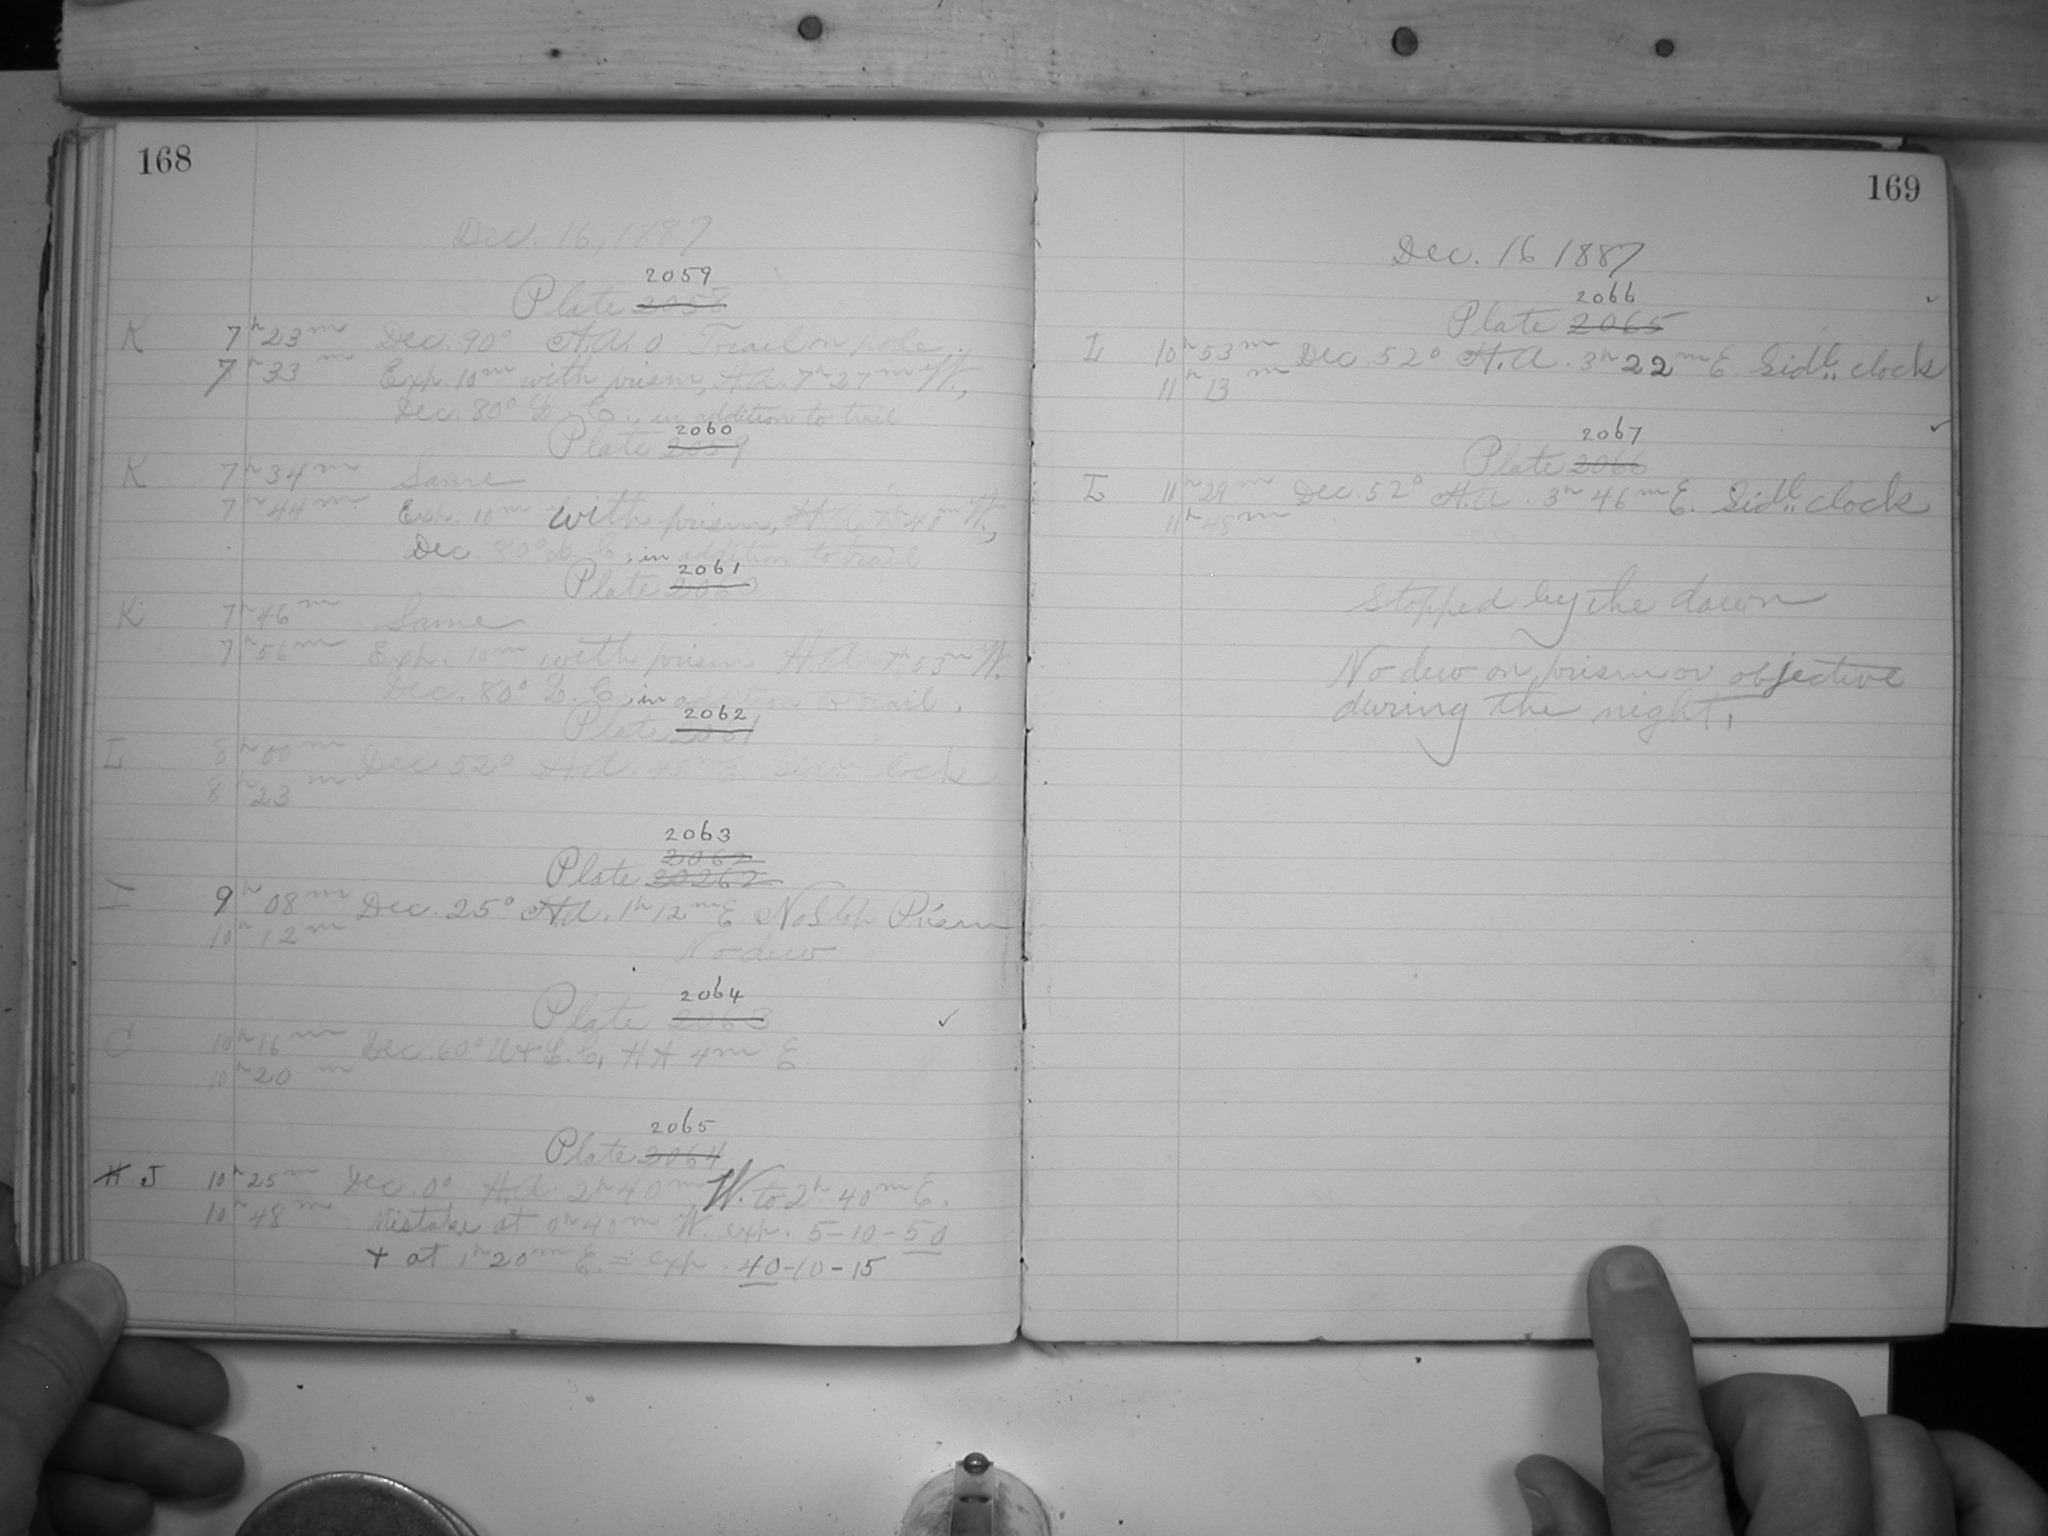 168
Dec. 16, 1887
2059
Plate 2058
K 7h 23m Dec. 90° H.A. 0 Trail on pole.
7h 33m Exp. 10m with prism, H.A. 7h 27m W.,
Dec. 80° L. C., in addition to trail
2060
Plate 2059
K 7h 34m Same
7h 44m Exp. 10m with prism, H.A. 7h 40m W.,
Dec. 80° L. C., in addition to trail
2061
Plate 2060
K 7h 46m Same
7h 56m Exp. 10m with prism H.A. 7h 53m W.
Dec. 80° L. C., in addition to trail.
2062
Plate 2061
I 8h 00m Dec. 52° H.A. 45m E. Sidl. clock
8h 23m
2063
2062
Plate 20262
I 9h 08m Dec. 25° H.A. 1h 12m E. No Stop Prism
10h 12m
No dew
2064
Plate 2063 ✓
C 10h 16m Dec. 60° U + L. C., H A 4m E.
10h 20m
2065
Plate 2064
H J 10h 25m Dec. 0° H.A. 2h 40m W. to 2h 40m E.
10h 48m Mistake at 0h 40m W. exp. 5-10-50
+ at 1h 20m E. = exp. 40-10-15
169
Dec. 16 1887
2066 ✓
Plate 2065
I 10h 53m Dec. 52° H.A. 3h 22m E. Sidl. clock
11h 13m
2067 ✓
Plate 2066
I 11h 29m Dec. 52° H.A. 3h 46m E. Sidl. clock
11h 48m
Stopped by the dawn
No dew on prism or objective
during the night.